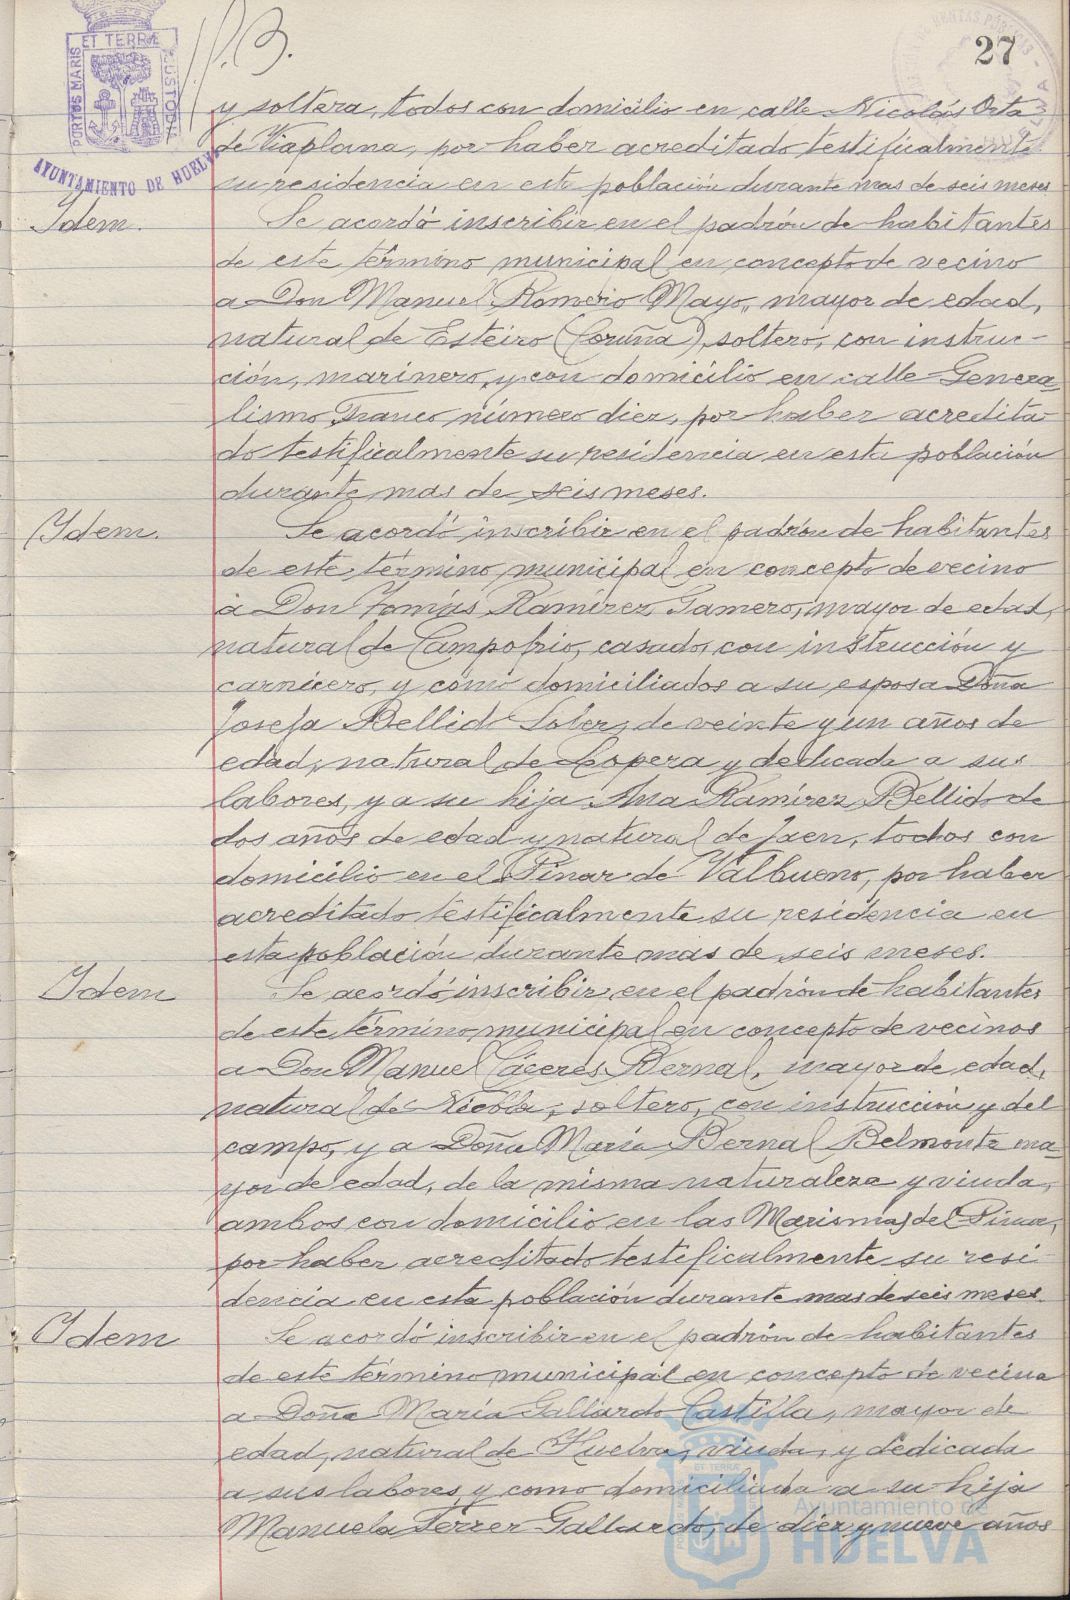 27
PORTUS MARIS ET TERRÆ CUSTODIA
AYUNTAMIENTO DE HUELVA
y soltera, todos con domicilio en calle Nicolás Orta
de Viaplana, por haber acreditado testificalmente
su residencia en esta población durante mas de seis meses
Idem.
Se acordó inscribir en el padrón de habitantes
de este término municipal en concepto de vecino
a Don Manuel Romerio Mayo, mayor de edad,
natural de Esteiro (Coruña), soltero, con instruc-
ción, marinero, y con domicilio en calle Genera-
lismo Franco número diez, por haber acredita-
do testificalmente su residencia en esta población
durante mas de seis meses.
Idem.
Se acordó inscribir en el padrón de habitantes
de este término municipal en concepto de vecino
a Don Tomás Ramírez Gamero, mayor de edad,
natural de Campofrio, casado, con instrucción y
carnicero, y como domiciliados a su esposa Doña
Josefa Bellido Soler, de veinte y un años de
edad, natural de Lopera y dedicada a sus
labores, y a su hija Ana Ramírez Bellido de
dos años de edad y natural de Jaen, todos con
domicilio en el Pinar de Valbueno, por haber
acreditado testificalmente su residencia en
esta población durante mas de seis meses.
Idem
Se acordó inscribir en el padrón de habitantes
de este término municipal en concepto de vecinos
a Don Manuel Cáceres Bernal, mayor de edad,
natural de Niebla, soltero, con instrucción y del
campo, y a Doña María Bernal Belmonte ma-
yor de edad, de la misma naturaleza y viuda,
ambos con domicilio en las Marismas del Pinar,
por haber acreditado testificalmente su resi-
dencia en esta población durante mas de seis meses.
Idem
Se acordó inscribir en el padrón de habitantes
de este término municipal en concepto de vecina
a Doña María Gallardo Castilla, mayor de
edad, natural de Huelva, viuda, y dedicada
a sus labores, y como domiciliada a su hija
Manuela Ferrer Gallardo, de diez y nueve años
Ayuntamiento de
HUELVA